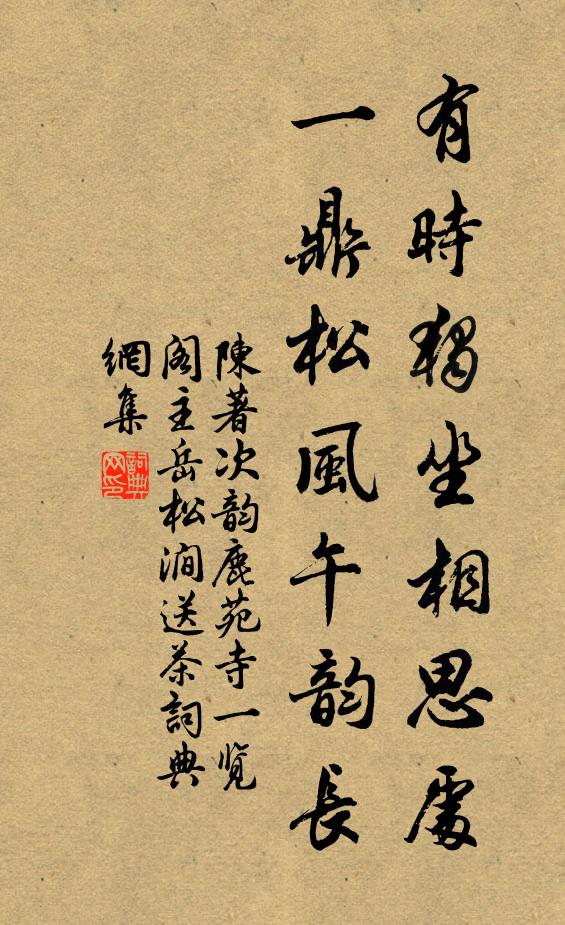 有時獨坐相思處
一鼎松風午韵長
陳著次韵鹿苑寺一览
阁主岳松澗送茶詞典
網集
詞典网印